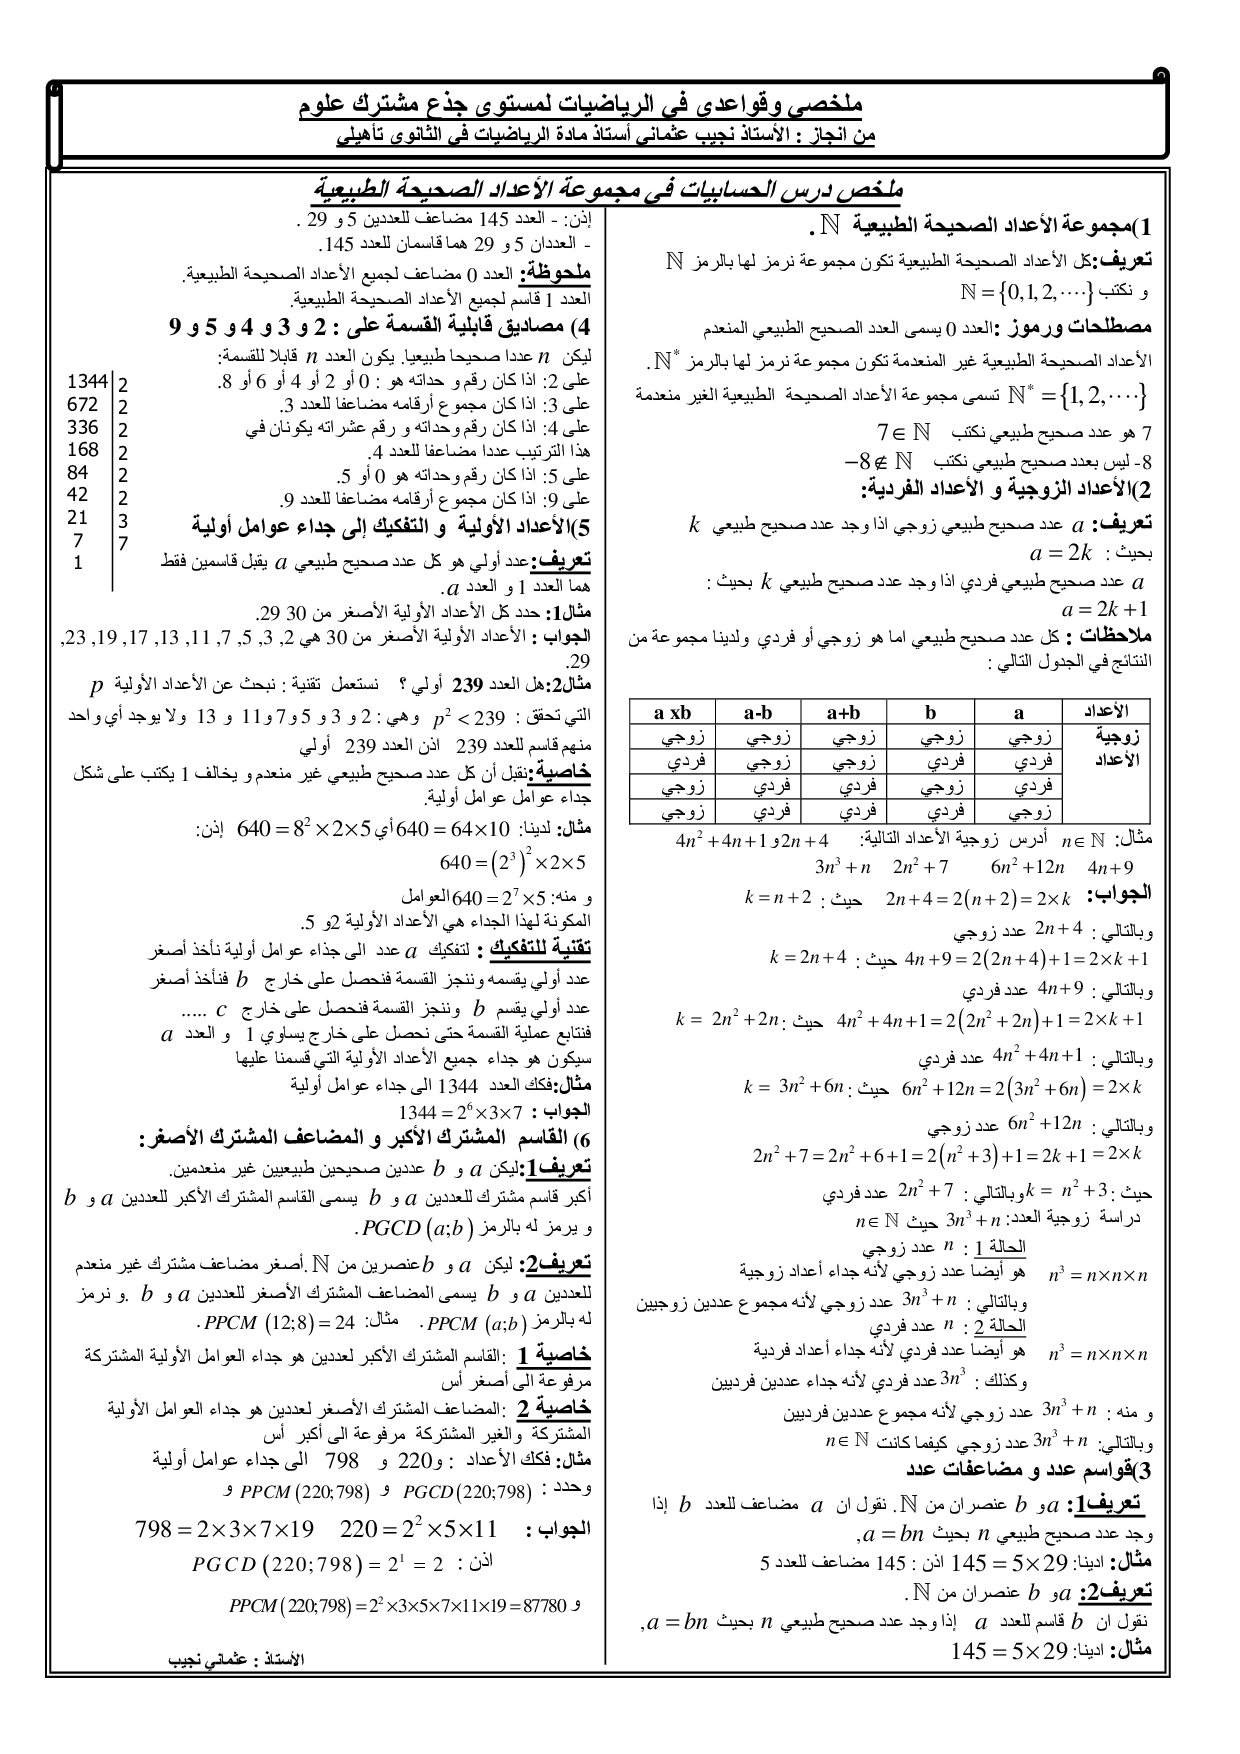 ملخصي وقواعدي في الرياضيات لمستوى جذع مشترك علوم
من انجاز : الأستاذ نجيب عثماني أستاذ مادة الرياضيات في الثانوي تأهيلي
ملخص درس الحسابيات في مجموعة الأعداد الصحيحة الطبيعية
1)مجموعة الأعداد الصحيحة الطبيعية ℕ .
تعريف:كل الأعداد الصحيحة الطبيعية تكون مجموعة نرمز لها بالرمز ℕ
و نكتب ℕ = {0,1,2,....}
مصطلحات ورموز :العدد 0 يسمى العدد الصحيح الطبيعي المنعدم
الأعداد الصحيحة الطبيعية غير المنعدمة تكون مجموعة نرمز لها بالرمز ℕ* .
ℕ* = {1,2,....} تسمى مجموعة الأعداد الصحيحة الطبيعية الغير منعدمة
7 هو عدد صحيح طبيعي نكتب 7 ∈ ℕ
8- ليس بعدد صحيح طبيعي نكتب −8 ∉ ℕ
2)الأعداد الزوجية و الأعداد الفردية:
تعريف: a عدد صحيح طبيعي زوجي اذا وجد عدد صحيح طبيعي k
بحيث : a = 2k
a عدد صحيح طبيعي فردي اذا وجد عدد صحيح طبيعي k بحيث :
a = 2k +1
ملاحظات : كل عدد صحيح طبيعي اما هو زوجي أو فردي ولدينا مجموعة من
النتائج في الجدول التالي :
الأعداد a b a+b a-b a xb
زوجية زوجي زوجي زوجي زوجي زوجي
الأعداد فردي فردي زوجي زوجي فردي
فردي زوجي فردي فردي زوجي
زوجي فردي فردي فردي زوجي
مثال: n ∈ ℕ أدرس زوجية الأعداد التالية: 2n + 4 و 4n² + 4n + 1
4n + 9 6n² +12n 2n² + 7 3n³ + n
الجواب: 2n + 4 = 2(n + 2) = 2×k حيث : k = n + 2
وبالتالي : 2n + 4 عدد زوجي
4n + 9 = 2(2n + 4) + 1 = 2×k +1 حيث : k = 2n + 4
وبالتالي : 4n + 9 عدد فردي
4n² + 4n +1 = 2(2n² + 2n) + 1 = 2×k +1 حيث : k = 2n² + 2n
وبالتالي : 4n² + 4n +1 عدد فردي
6n² +12n = 2(3n² + 6n) = 2×k حيث : k = 3n² + 6n
وبالتالي : 6n² +12n عدد زوجي
2n² + 7 = 2n² + 6 +1 = 2(n² + 3) +1 = 2k +1 = 2×k
حيث : k = n² + 3 وبالتالي : 2n² + 7 عدد فردي
دراسة زوجية العدد: 3n³ + n حيث n ∈ ℕ
الحالة 1 : n عدد زوجي
n³ = n×n×n هو أيضا عدد زوجي لأنه جداء أعداد زوجية
وبالتالي : 3n³ + n عدد زوجي لأنه مجموع عددين زوجيين
الحالة 2 : n عدد فردي
n³ = n×n×n هو أيضا عدد فردي لأنه جداء أعداد فردية
وكذلك : 3n³ عدد فردي لأنه جداء عددين فرديين
و منه : 3n³ + n عدد زوجي لأنه مجموع عددين فرديين
وبالتالي: 3n³ + n عدد زوجي كيفما كانت n ∈ ℕ
3)قواسم عدد و مضاعفات عدد
تعريف1: a و b عنصران من ℕ. نقول ان a مضاعف للعدد b إذا
وجد عدد صحيح طبيعي n بحيث a = bn,
مثال: ادينا: 145 = 5×29 اذن : 145 مضاعف للعدد 5
تعريف2: a و b عنصران من ℕ .
نقول ان b قاسم للعدد a إذا وجد عدد صحيح طبيعي n بحيث a = bn,
مثال: ادينا: 145 = 5×29
إذن: - العدد 145 مضاعف للعددين 5 و 29 .
- العددان 5 و 29 هما قاسمان للعدد 145.
ملحوظة: العدد 0 مضاعف لجميع الأعداد الصحيحة الطبيعية.
العدد 1 قاسم لجميع الأعداد الصحيحة الطبيعية.
4) مصاديق قابلية القسمة على : 2 و 3 و 4 و 5 و 9
ليكن n عددا صحيحا طبيعيا. يكون العدد n قابلا للقسمة:
على 2: اذا كان رقم و حداته هو : 0 أو 2 أو 4 أو 6 أو 8.
على 3: اذا كان مجموع أرقامه مضاعفا للعدد 3.
على 4: اذا كان رقم وحداته و رقم عشراته يكونان في
هذا الترتيب عددا مضاعفا للعدد 4.
على 5: اذا كان رقم وحداته هو 0 أو 5.
على 9: اذا كان مجموع أرقامه مضاعفا للعدد 9.
1344 2
672 2
336 2
168 2
84 2
42 2
21 3
7 7
1
5)الأعداد الأولية و التفكيك إلى جداء عوامل أولية
تعريف:عدد أولي هو كل عدد صحيح طبيعي a يقبل قاسمين فقط
هما العدد 1 و العدد a.
مثال1: حدد كل الأعداد الأولية الأصغر من 30 29.
الجواب : الأعداد الأولية الأصغر من 30 هي 2, 3, 5, 7, 11, 13, 17, 19, 23,
29.
مثال2:هل العدد 239 أولي ؟ نستعمل تقنية : نبحث عن الأعداد الأولية p
التي تحقق : p² < 239 وهي : 2 و 3 و 5 و 7 و11 و 13 ولا يوجد أي واحد
منهم قاسم للعدد 239 اذن العدد 239 أولي
خاصية:نقبل أن كل عدد صحيح طبيعي غير منعدم و يخالف 1 يكتب على شكل
جداء عوامل عوامل أولية.
مثال: لدينا: 640 = 64×10 أي 640 = 8² × 2×5 إذن:
640 = (2³)² ×2×5
و منه: 640 = 2⁷ ×5 العوامل
المكونة لهذا الجداء هي الأعداد الأولية 2و 5.
تقنية للتفكيك : لتفكيك a عدد الى جذاء عوامل أولية نأخذ أصغر
عدد أولي يقسمه وننجز القسمة فنحصل على خارج b فنأخذ أصغر
عدد أولي يقسم b وننجز القسمة فنحصل على خارج c .....
فنتابع عملية القسمة حتى نحصل على خارج يساوي 1 و العدد a
سيكون هو جداء جميع الأعداد الأولية التي قسمنا عليها
مثال:فكك العدد 1344 الى جداء عوامل أولية
الجواب : 1344 = 2⁶×3×7
6) القاسم المشترك الأكبر و المضاعف المشترك الأصغر:
تعريف1:ليكن a و b عددين صحيحين طبيعيين غير منعدمين.
أكبر قاسم مشترك للعددين a و b يسمى القاسم المشترك الأكبر للعددين a و b
و يرمز له بالرمز PGCD (a;b).
تعريف2: ليكن a و b عنصرين من ℕ .أصغر مضاعف مشترك غير منعدم
للعددين a و b يسمى المضاعف المشترك الأصغر للعددين a و b .و نرمز
له بالرمز PPCM (a;b). مثال: PPCM (12;8) = 24 .
خاصية 1 :القاسم المشترك الأكبر لعددين هو جداء العوامل الأولية المشتركة
مرفوعة الى أصغر أس
خاصية 2 :المضاعف المشترك الأصغر لعددين هو جداء العوامل الأولية
المشتركة والغير المشتركة مرفوعة الى أكبر أس
مثال: فكك الأعداد : و220 و 798 الى جداء عوامل أولية
وحدد : PGCD(220;798) و PPCM(220;798) و
الجواب : 220 = 2² ×5×11 798 = 2×3×7×19
اذن : PGCD (220;798) = 2¹ = 2
و PPCM(220;798) = 2²×3×5×7×11×19 = 87780
الأستاذ : عثماني نجيب